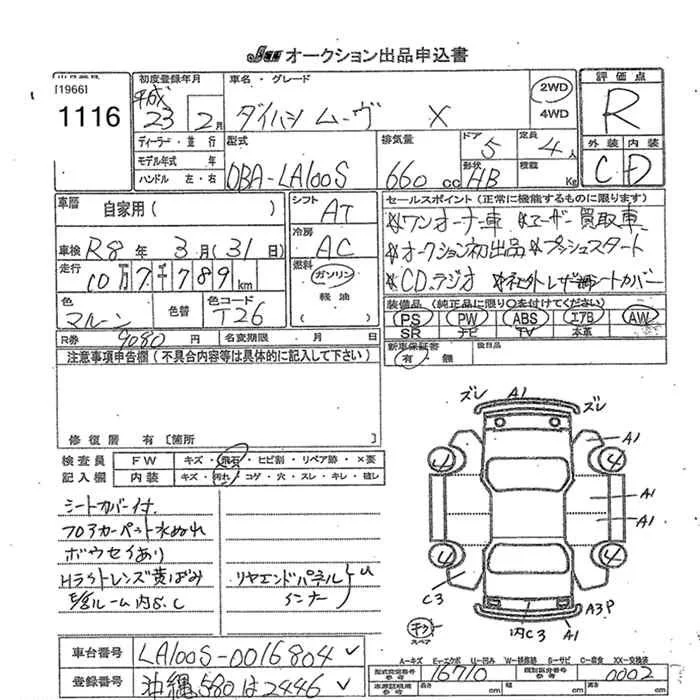 オークション出品申込書
[1966]
1116
初度登録年月
平成
23 2月
車名・グレード
ダイハツ ムーヴ X
2WD
4WD
評価点
R
外装 内装
C D
ディーラー・並行
モデル年式 年
ハンドル 左・右
型式
DBA-LA100S
排気量
660 cc
ドア
5
形状
HB
定員
4人
積載
Kg
車歴
自家用 ( )
シフト
AT
車検 R8 年 3 月 (31日)
冷房
AC
走行
10万7千789km
燃料
ガソリン
軽油
色
マルーン
色替
色コード
T26
R券 9080 円
名変期限 月 日
セールスポイント (正常に機能するものに限ります)
*ワンオーナー車 *ユーザー買取車
*オークション初出品 *プッシュスタート
*CD.ラジオ *社外レザー調シートカバー
装備品 (純正品に限り○を付けてください)
PS PW ABS エアB AW
SR ナビ TV 本革
新車保証書
有・無
後日品
注意事項申告欄 (不具合内容等は具体的に記入して下さい)
修復歴 有 [箇所
検査員
記入欄
FW キズ・飛石・ヒビ割・リペア跡・×要
内装 キズ・汚れ・コゲ・穴・スレ・キレ・破レ
シートカバー付
フロアカーペット水ぬれ
ボウセイあり
Hライトレンズ黄ばみ
E/gルーム内S.C
リヤエンドパネル
インナー
U
ズレ A1 ズレ
A1
4 4
A1
A1
4 4
C3
A3P
内C3
A1
キズ
スペア
A-キズ E-エクボ U-凹み W-波修跡 S-サビ C-腐食 XX-交換済
車台番号
LA100S-0016804
登録番号
沖縄580は2446
型式指定番号
参考
16710
類別区分番号
参考
0002
cm cm cm